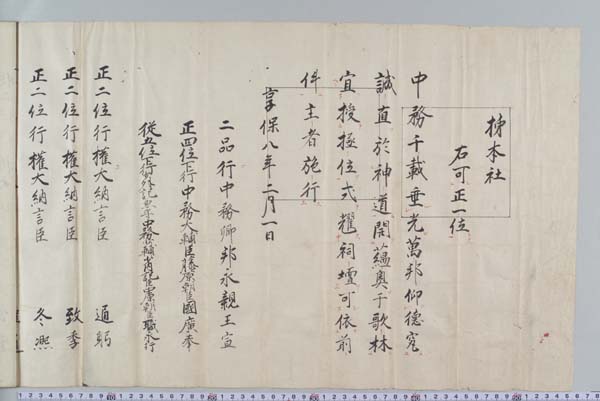 柹本社
右可正一位
中務千載垂光萬邦仰德究
誠直於神道開蘊奥于歌林
宜授極位式耀祠壇可依前
件主者施行
享保八年二月一日
二品行中務卿邦永親王宣
正四位下行中務大輔臣藤原朝臣國廣奉
從五位下行 中務少輔 職永行
正二位行權大納言臣 通躬
正二位行權大納言臣 致季
正二位行權大納言臣 冬熙